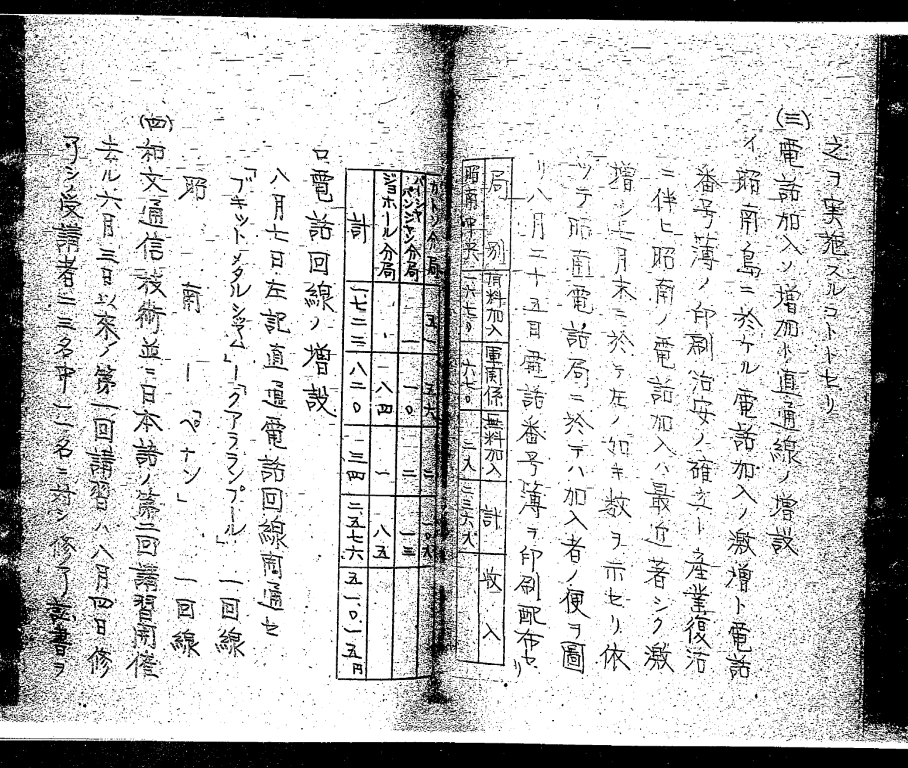 之ヲ実施スルコトトセリ
(三)電話加入ノ増加ト直通線ノ増設
イ、昭南島ニ於ケル電話加入ノ激増ト電話
番号簿ノ印刷治安ノ確立ト産業復活
ニ伴ヒ昭南ノ電話加入ハ最近著シク激
増シ七月末ニ於テ左ノ如キ数ヲ示セリ依
ツテ昭南電話局ニ於テハ加入者ノ便ヲ圖
リ八月二十五日電話番号簿ヲ印刷配布セリ
局別 有料加入 軍関係 無料加入 計 収入
昭南中央 一六七〇 六七〇
カトン分局 五一 五六 二 一〇九
パイシャパンジャン分局 一 一〇 二 一三
ジョホール分局 一 八四 一 八五
計 一七二三 八二〇 三四 二五七六 五一〇一五円
ロ電話回線ノ増設
八月七日左記直通電話回線開通セリ
「ブキットメタルシャム」ー「クアラランプール」 一回線
昭南ー「ペナン」 一回線
(四)和文通信技術並ニ日本語ノ第二回講習開催
去ル六月三日以来ノ第一回講習ハ八月四日修
了シ受講者二三名中一一名ニ対シ修了証書ヲ